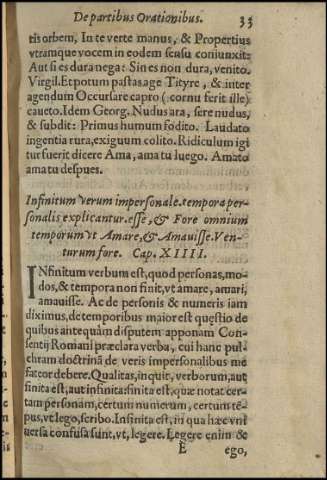 De partibus Orationibus. 35
tis orbem, In te verte manus, & Propertius
vtramque vocem in eodem sensu coniunxit:
Aut si es dura nega: Sin es non dura, venito.
Virgil. Et potum pastas age Tityre, & inter
agendum Occursare capro (cornu ferit ille)
caueto. Idem Georg. Nudus ara, sere nudus,
& subdit: Primus humum fodito. Laudato
ingentia rura, exiguum colito. Ridiculum igi
tur fuerit dicere Ama, ama tu luego. Amato
ama tu despues.
Infinitum verum impersonale. tempora per-
sonalis explicantur. esse, & Fore omnium
temporum vt Amare, & Amauisse. Ven-
turum fore. Cap. XIIII.
INfinitum verbum est, quod personas, mo-
dos, & tempora non finit, vt amare, amari,
amauisse. Ac de personis & numeris iam
diximus, de temporibus maior est quęstio de
quibus antequàm disputem apponam Con-
sentij Romani præclara verba, cui hanc pul-
chram doctrinã de veris impersonalibus me
fateor debere. Qualitas, inquit, verborum, aut
finita est, aut infinita: finita est, quæ notat cer-
tam personam, certum numerum, certum tẽ-
pus, vt lego, scribo. Infinita est, in qua hæc vni
uersa confusa sunt, vt, legere. Legere enim &
E ego,